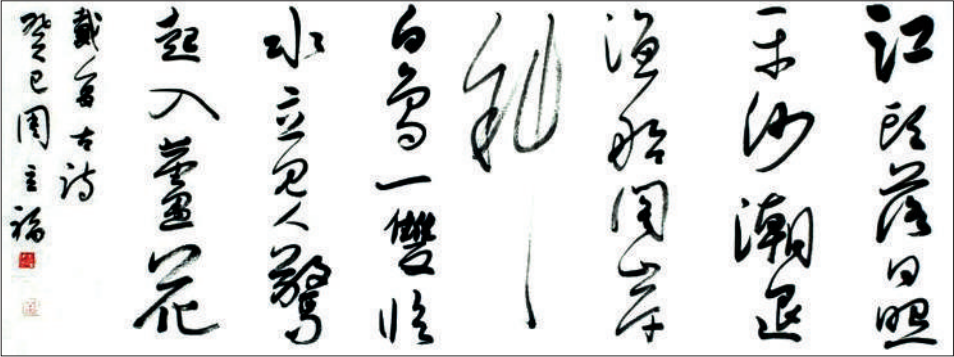 江頭落日照
平沙潮退
漁船閣岸
斜
白鳥一雙臨
水立見人驚
起入蘆花
戴復古詩
癸巳周